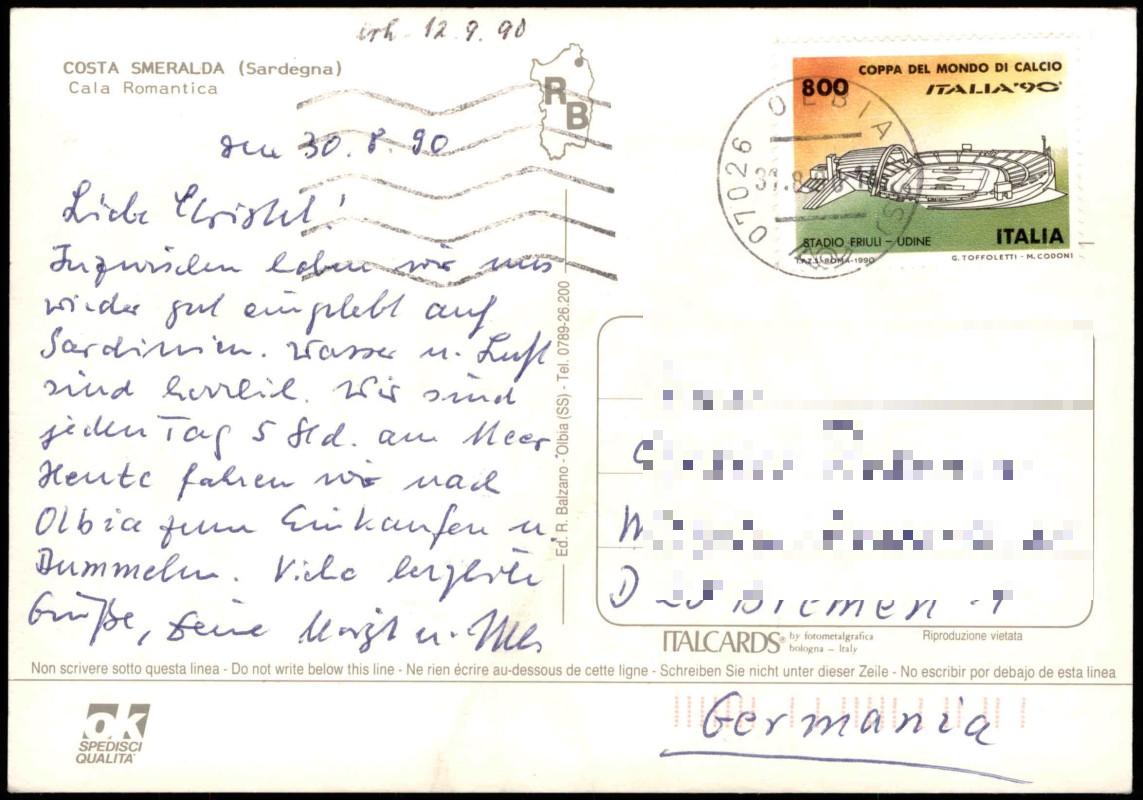 erh. 12.9.90
COSTA SMERALDA (Sardegna)
Cala Romantica
RB
800
COPPA DEL MONDO DI CALCIO
ITALIA'90
STADIO FRIULI – UDINE
ITALIA
I.P.Z.S. ROMA-1990
G. TOFFOLETTI - M. CODONI
07026 OLBIA
den 30.8.90
Liebe Christel!
Inzwischen haben wir uns
wieder gut eingelebt auf
Sardinien. Wasser u. Luft
sind herrlich. Wir sind
jeden Tag 5 Std. am Meer
Heute fahren wir nach
Olbia zum Einkaufen u.
Bummeln. Viele herzliche
Grüße, Deine u.
Ed. R. Balzano - Olbia (SS) - Tel. 0789-26.200
D Bremen 1
ITALCARDS® by fotometalgrafica
bologna – Italy
Riproduzione vietata
Non scrivere sotto questa linea - Do not write below this line - Ne rien écrire au-dessous de cette ligne - Schreiben Sie nicht unter dieser Zeile - No escribir por debajo de esta linea
ok
SPEDISCI
QUALITA'
Germania